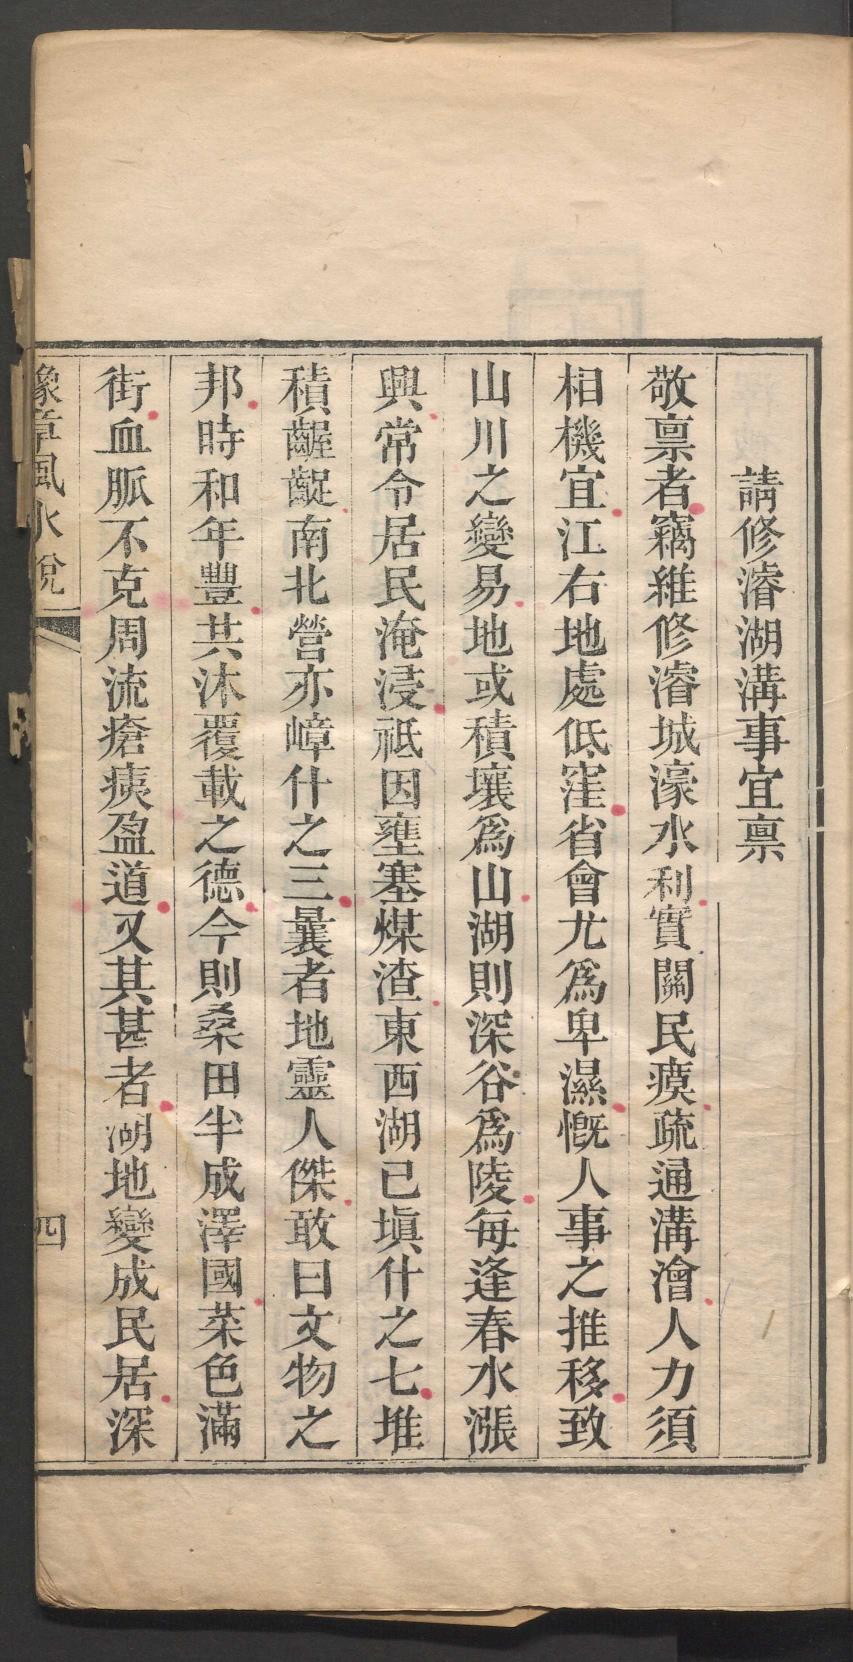 請修濬湖溝事宜禀
敬禀者竊維修濬城濠水利實關民瘼疏通溝澮人力須
相機宜江右地處低窪省會尤爲卑濕慨人事之推移致
山川之變易地或積壤爲山湖則深谷爲陵每逢春水漲
興常令居民淹浸祗因壅塞煤渣東西湖已塡什之七堆
積齷齪南北營亦嶂什之三曩者地靈人傑敢曰文物之
邦時和年豐共沐覆載之德今則桑田半成澤國菜色滿
街血脈不克周流瘡痍盈道又其甚者湖地變成民居深
豫章風水說
四